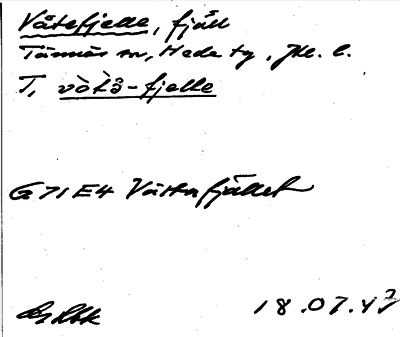 Våtefjelle, fjäll
Tännäs sn, Hede tg, Jtl. l.
T, vòtå-fjelle
G 71 E4 Våttafjället
18.07.47